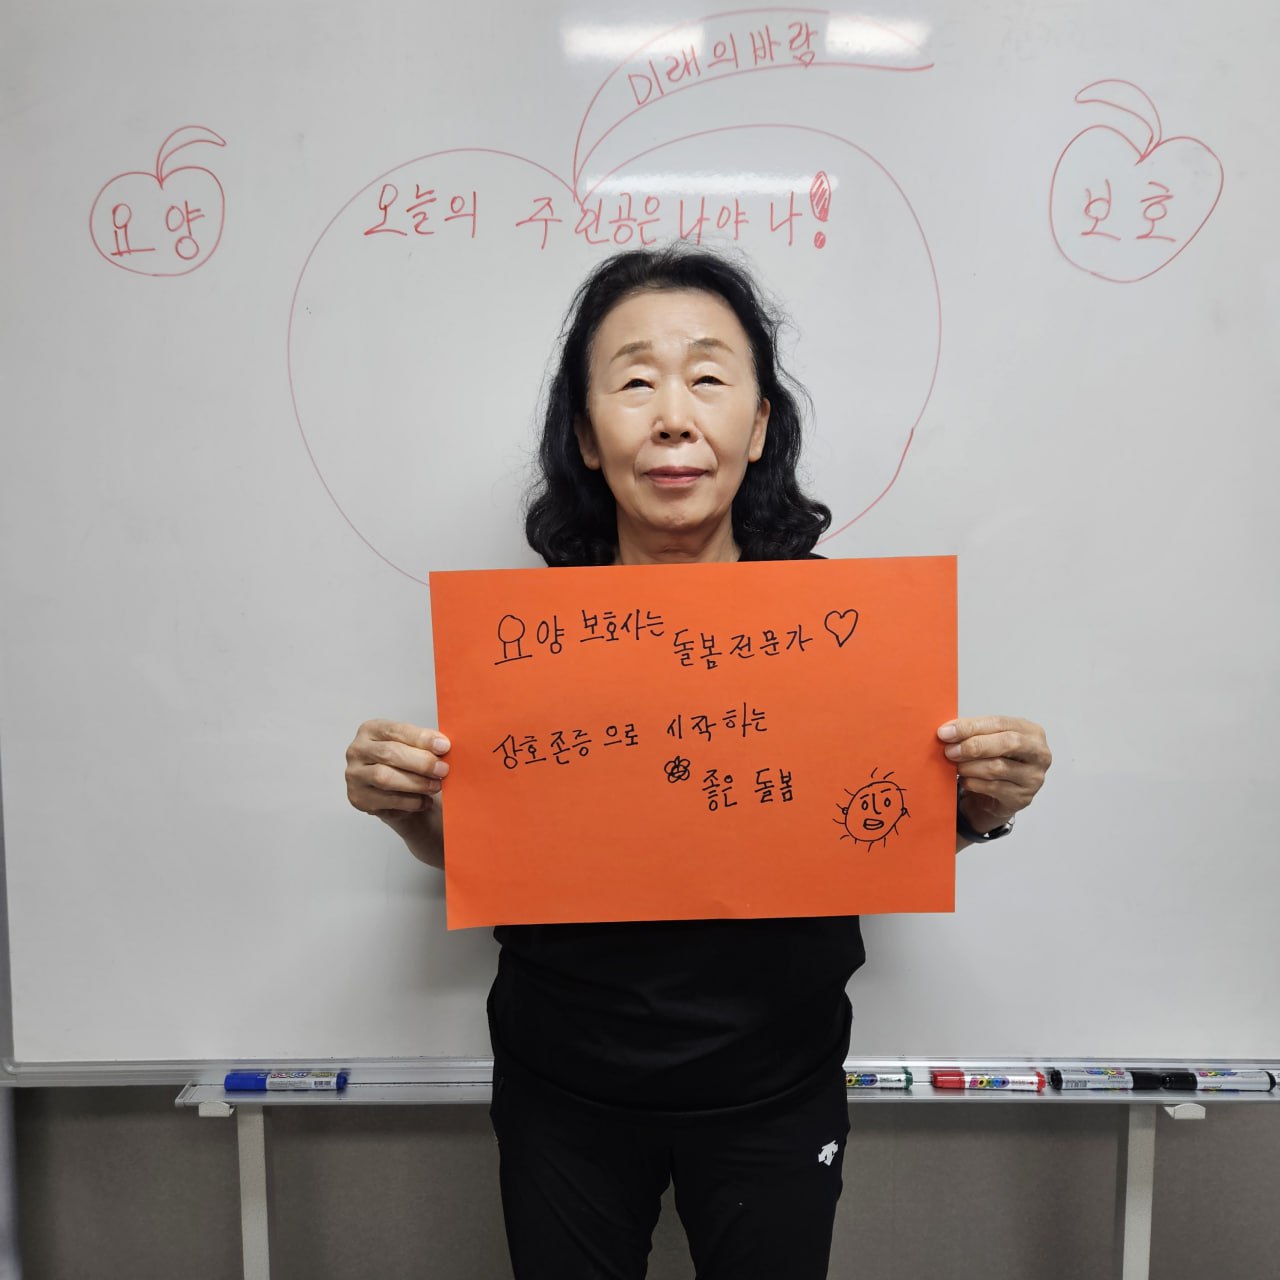 미래의바람
오늘의 주인공은 나야 나!
요양
보호
요양 보호사는 돌봄 전문가♡
상호존중으로 시작하는
좋은 돌봄